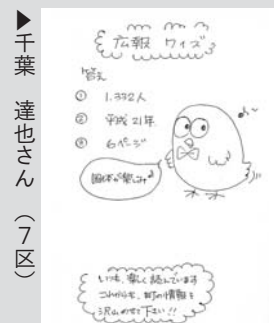 ▶千葉 達也さん (7区)
広報 クイズ
答え
① 1.332人
② 平成 21年
③ 6ページ
国体が楽しみ♪
いつも、楽しく読んでいます
これからも、町の情報を
沢山のせて下さい!!